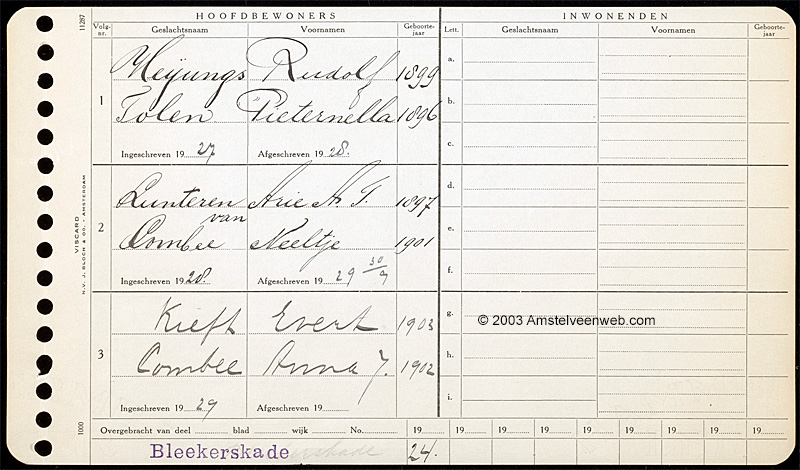 HOOFDBEWONERS INWONENDEN
Volg-nr. Geslachtsnaam Voornamen Geboorte-jaar Lett. Geslachtsnaam Voornamen Geboorte-jaar
11287
1
Meijungs Rudolf 1899
Tolen Pieternella 1896
Ingeschreven 19 27 Afgeschreven 19 28.
a.
b.
c.
2
Lunteren van Arie A. T. 1897
Combee Neeltje 1901
Ingeschreven 19 28. Afgeschreven 19 29 30/9
d.
e.
f.
3
Kieft Evert 1903
Combee Anna J. 1902
Ingeschreven 19 29 Afgeschreven 19
g.
h.
i.
© 2003 Amstelveenweb.com
VISCARD
N.V. J. BLOCH & CO. - AMSTERDAM
1000
Overgebracht van deel blad wijk No. 19 19 19 19 19 19 19 19 19
Bleekerskade 24.